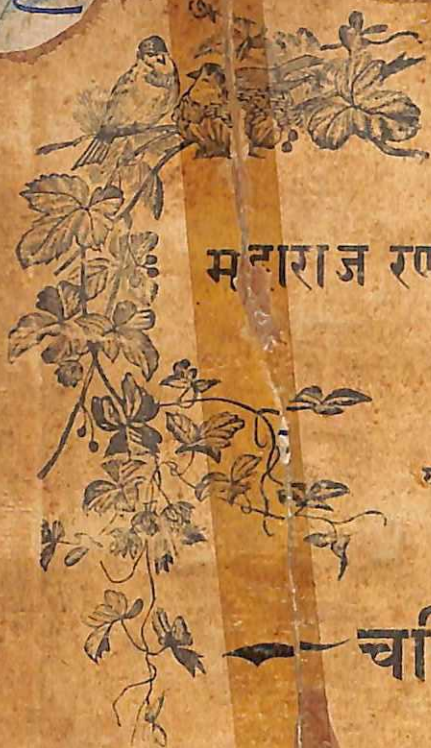 महाराज रण
चरि